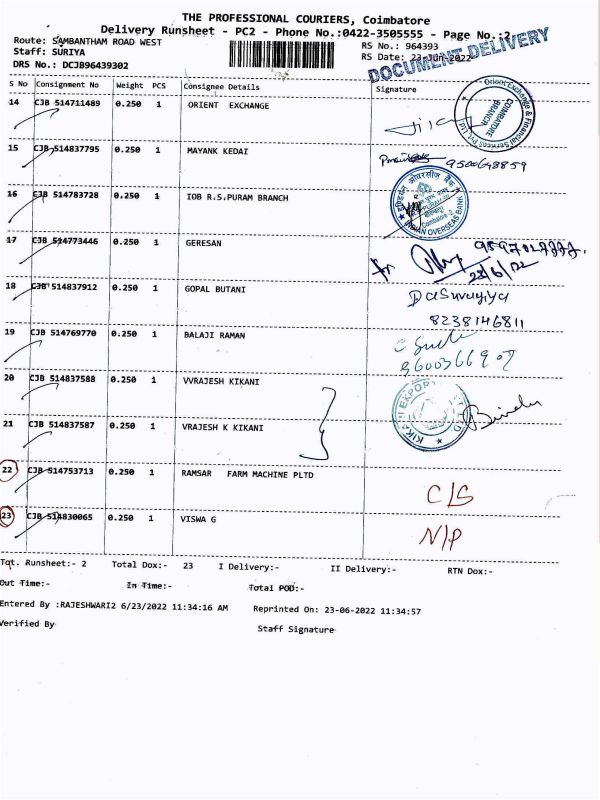 THE PROFESSIONAL COURIERS, Coimbatore
Delivery Runsheet - PC2 - Phone No.:0422-3505555 - Page No.:2
Route: SAMBANTHAM ROAD WEST RS No.: 964393
Staff: SURIYA RS Date: 23-Jun-2022
DRS No.: DCJB96439302 DOCUMENT DELIVERY
S No Consignment No Weight PCS Consignee Details Signature
14 CJB 514711489 0.250 1 ORIENT EXCHANGE
Orient Exchange & Financial Services Pvt. Ltd. COIMBATORE BRANCH
15 CJB 514837795 0.250 1 MAYANK KEDAI
9500648859
16 CJB 514783728 0.250 1 IOB R.S.PURAM BRANCH
इण्डियन ओवरसीज़ बैंक INDIAN OVERSEAS BANK Coimbatore-2
17 CJB 514773446 0.250 1 GERESAN
23/6/22
18 CJB 514837912 0.250 1 GOPAL BUTANI
8238146811
19 CJB 514769770 0.250 1 BALAJI RAMAN
9600366907
20 CJB 514837588 0.250 1 VVRAJESH KIKANI
KIKANI EXPORTS PVT LTD
21 CJB 514837587 0.250 1 VRAJESH K KIKANI
22 CJB 514753713 0.250 1 RAMSAR FARM MACHINE PLTD
C/S
23 CJB 514830065 0.250 1 VISWA G
N/P
Tot. Runsheet:- 2 Total Dox:- 23 I Delivery:- II Delivery:- RTN Dox:-
Out Time:- In Time:- Total POD:-
Entered By :RAJESHWARI2 6/23/2022 11:34:16 AM Reprinted On: 23-06-2022 11:34:57
Verified By Staff Signature